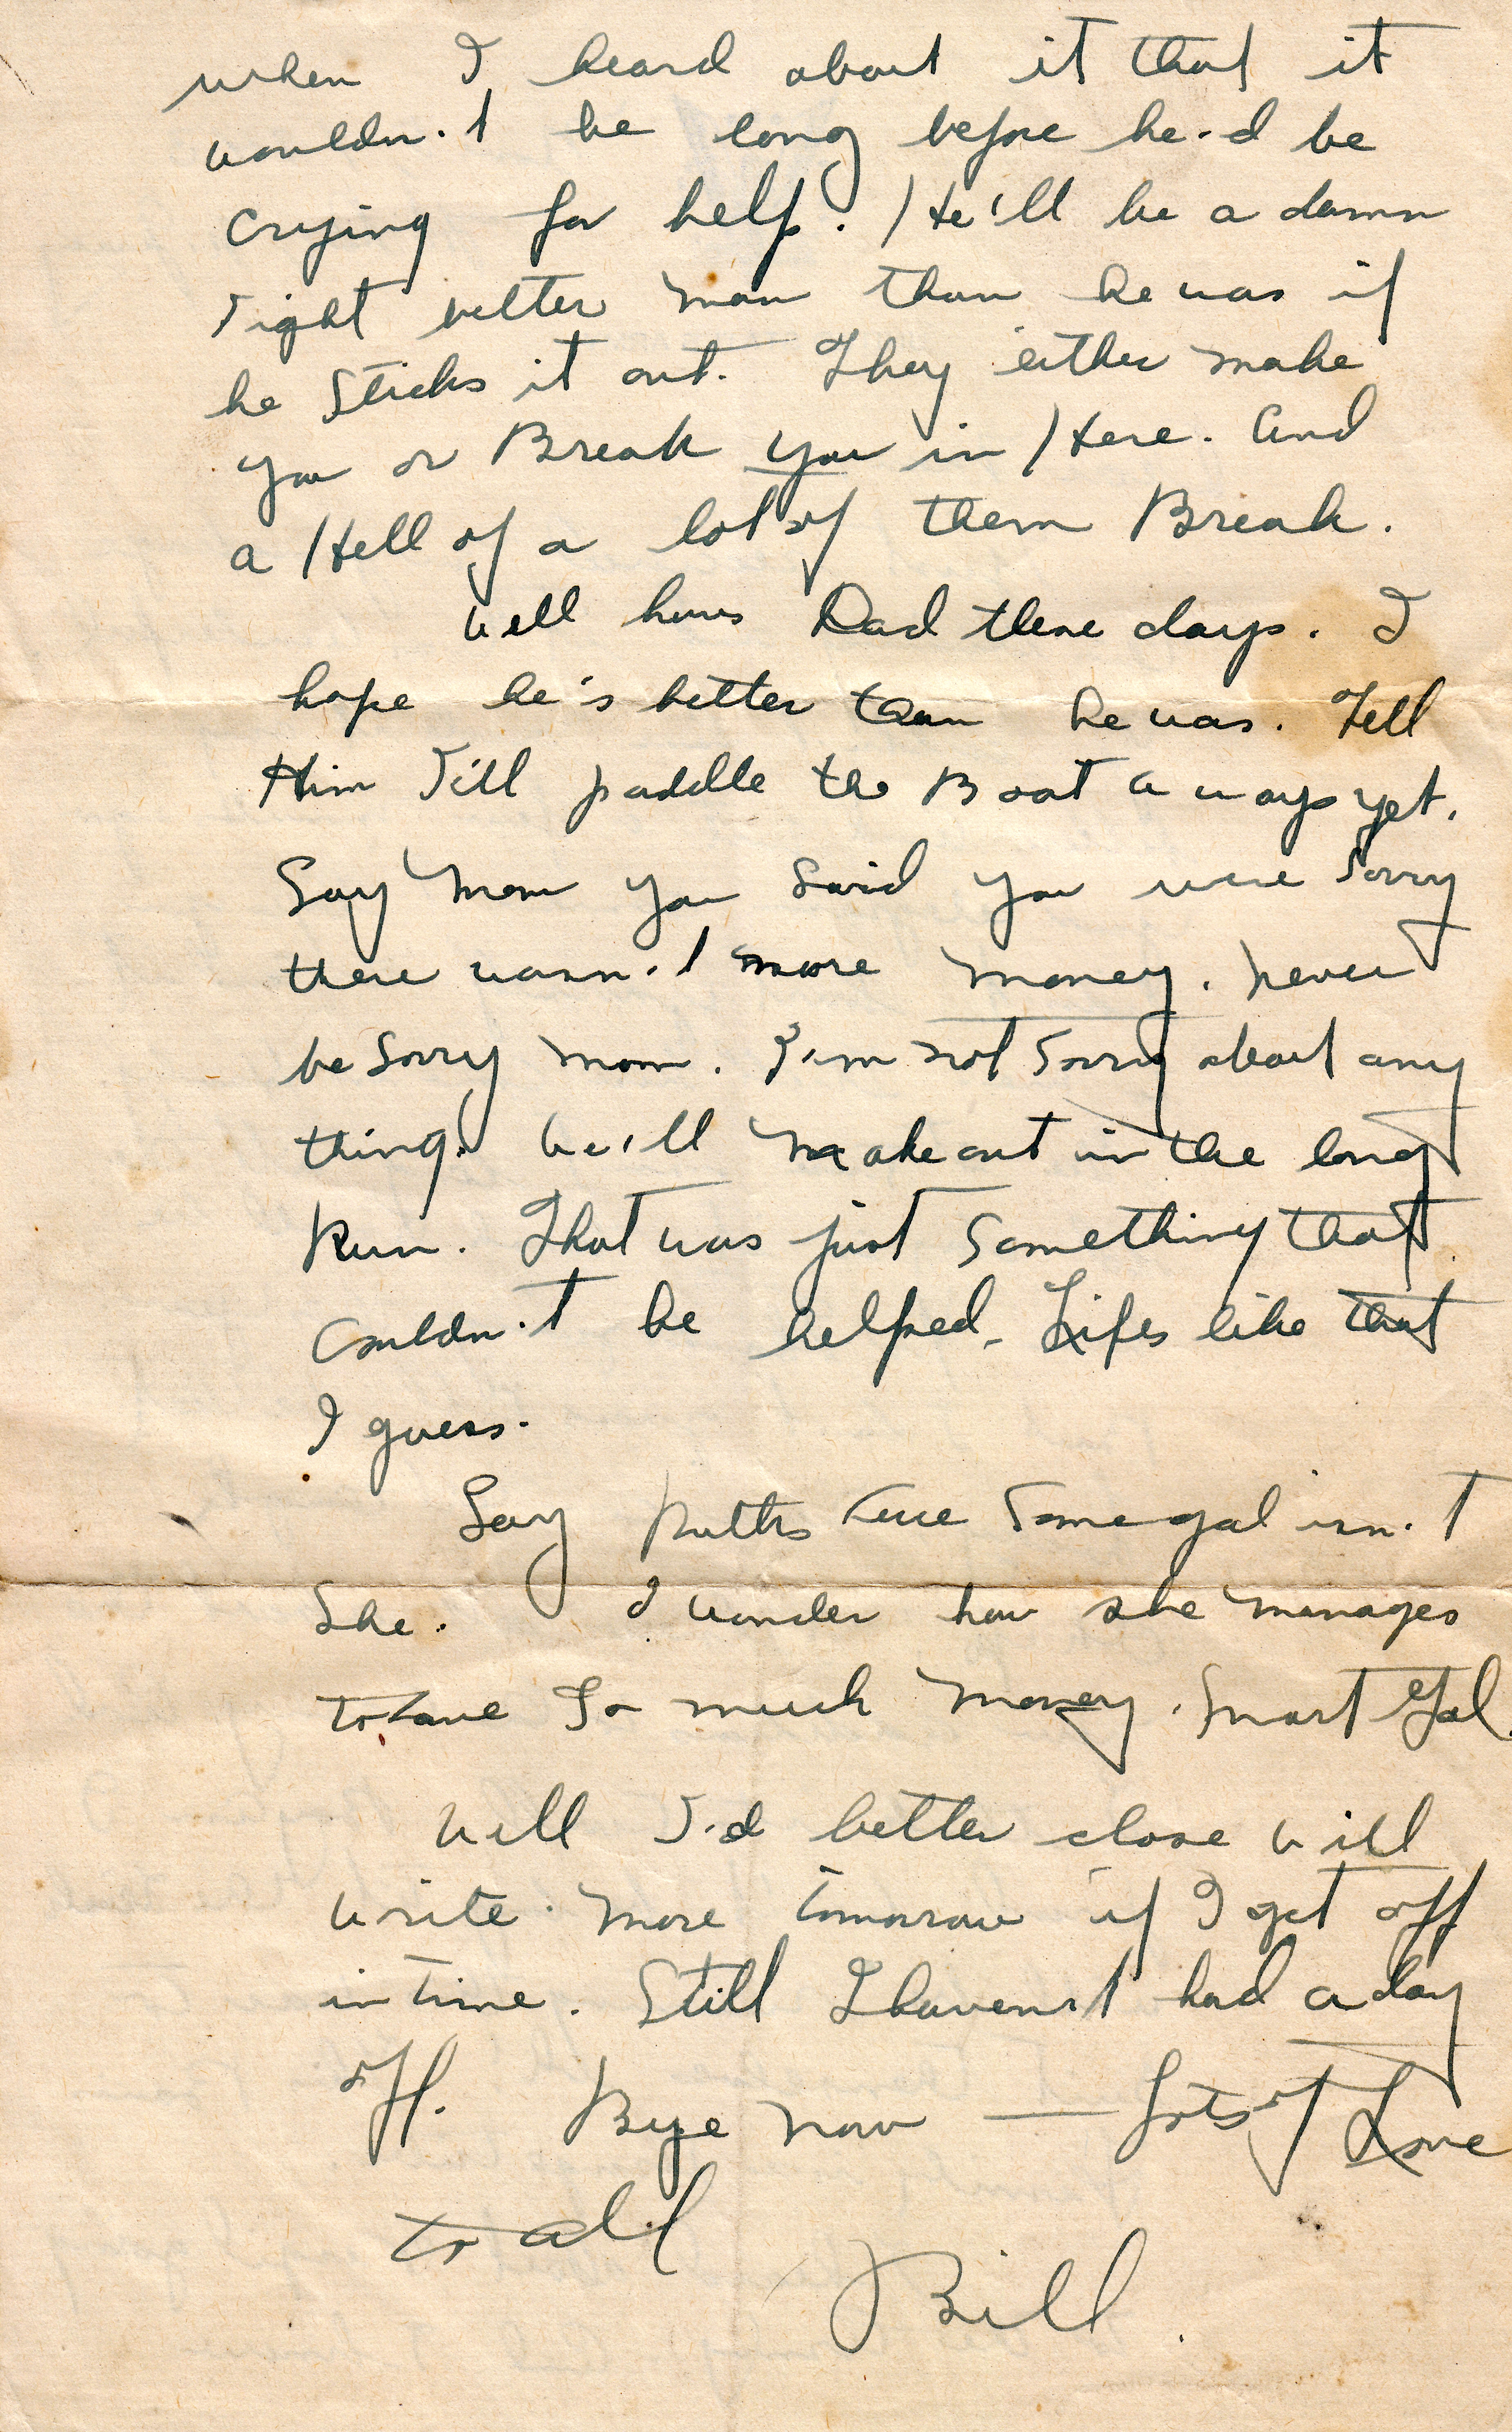 when I heard about it that it
wouldn't be long before he'd be
crying for help. He'll be a damn
sight better man than he was if
he Sticks it out. They either make
you or Break you in Here. And
a Hell of a lot of them Break.
Well hows Dad these days. I
hope he's better than he was. Tell
Him I'll paddle the Boat a ways yet.
Say Mom you Said you were Sorry
there wasn't more money. Never
be Sorry Mom. I'm not Sorry about any
thing. We'll make out in the long
Run. That was just Something that
Couldn't be helped. Lifes like that
I guess.
Say Ruths Some gal isn't
She. I wonder how she manages
to have So much Money. Smart Gal.
Well I'd better close will
write more tomorrow if I get off
in time. Still I haven't had a day
off. Bye now — Lots of Love
to all
Bill